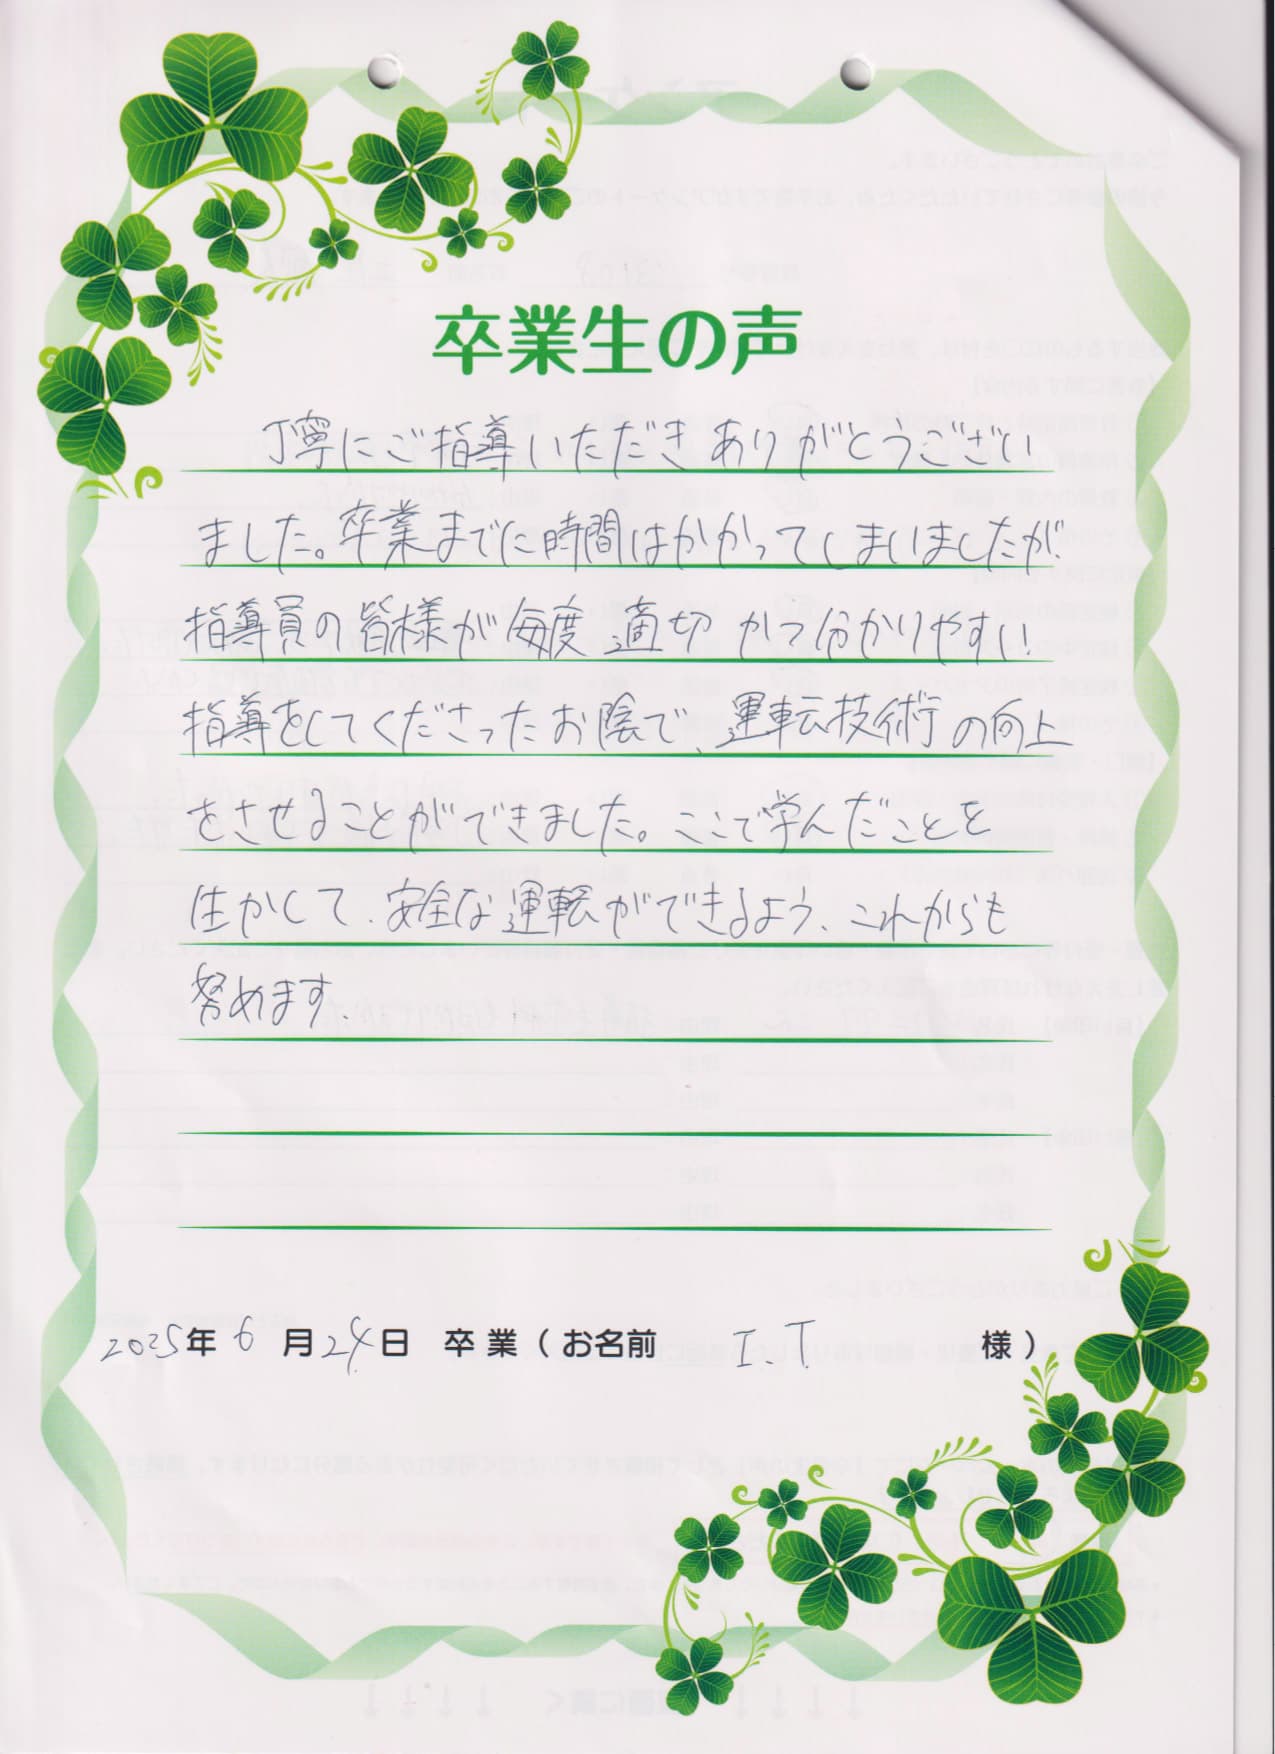 卒業生の声
丁寧にご指導いただきありがとうござい
ました。卒業までに時間はかかってしまいましたが、
指導員の皆様が毎度適切かつ分かりやすい
指導をしてくださったお陰で、運転技術の向上
をさせることができました。ここで学んだことを
生かして、安全な運転ができるよう、これからも
努めます
2025年6月24日 卒業(お名前 I.T. 様)